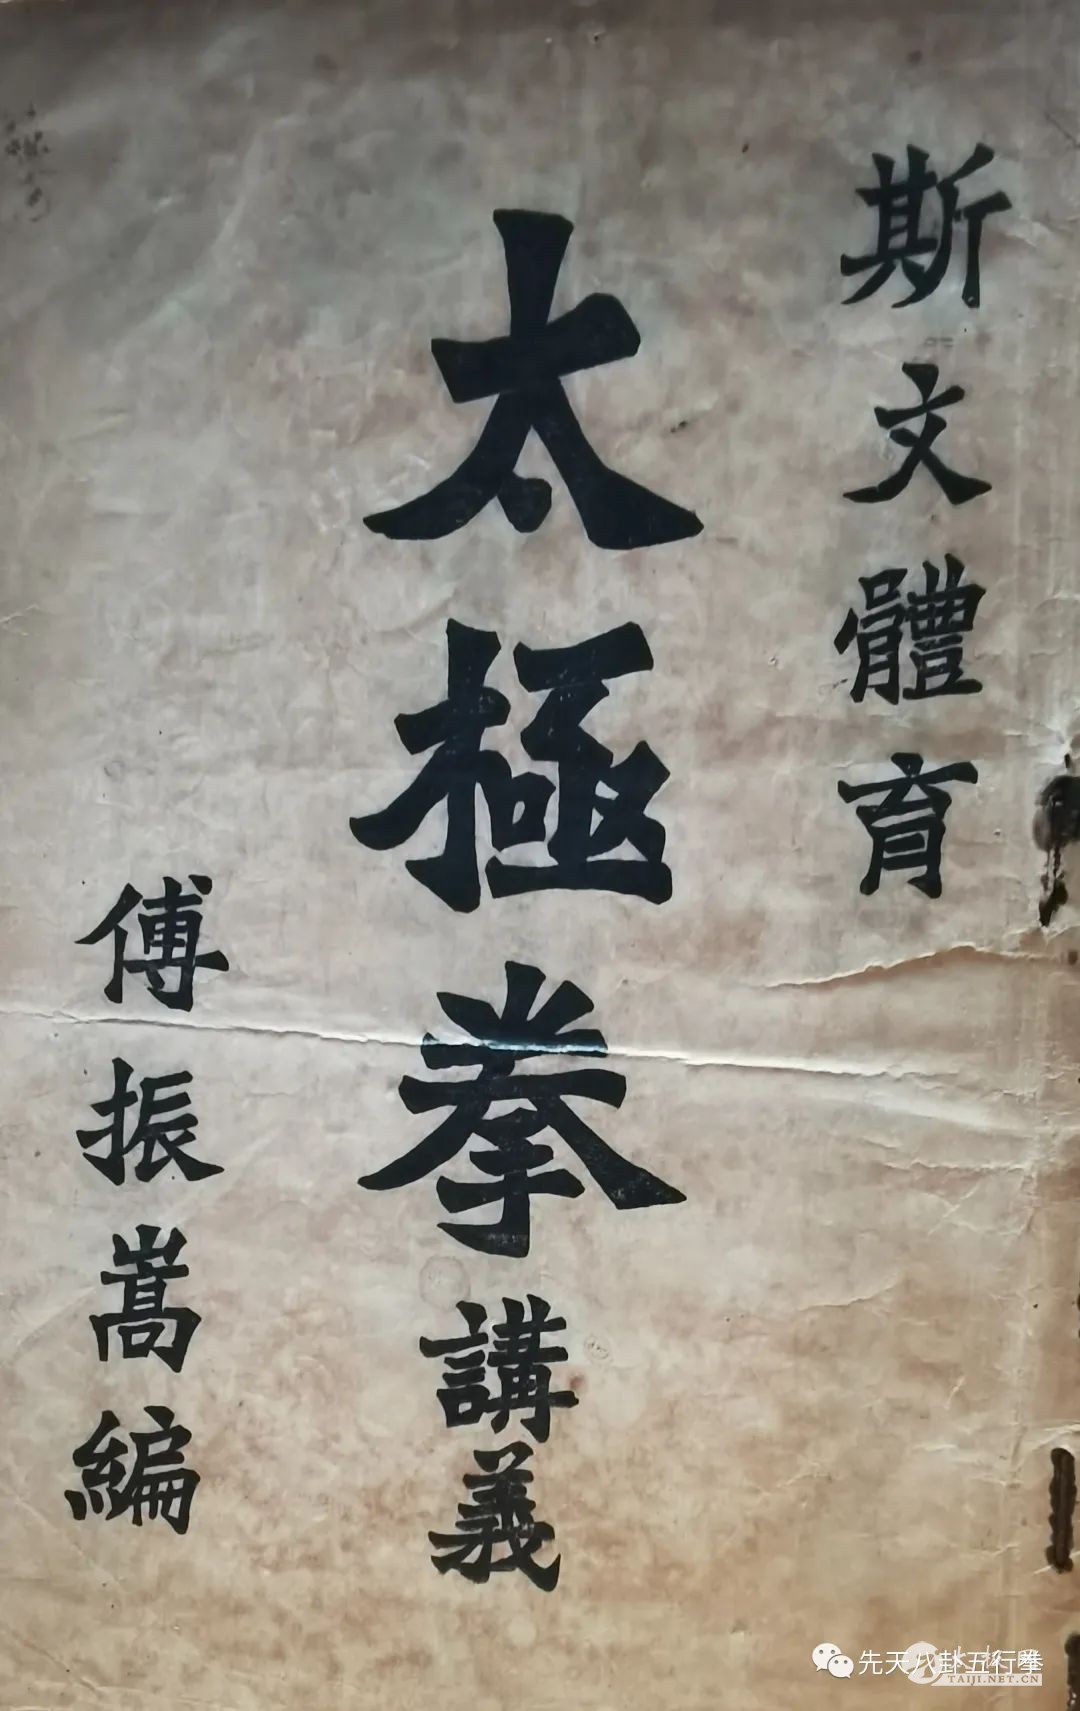 斯文體育
太極拳講義
傅振嵩編
先天八卦五行拳
TAIJI.NET.CN